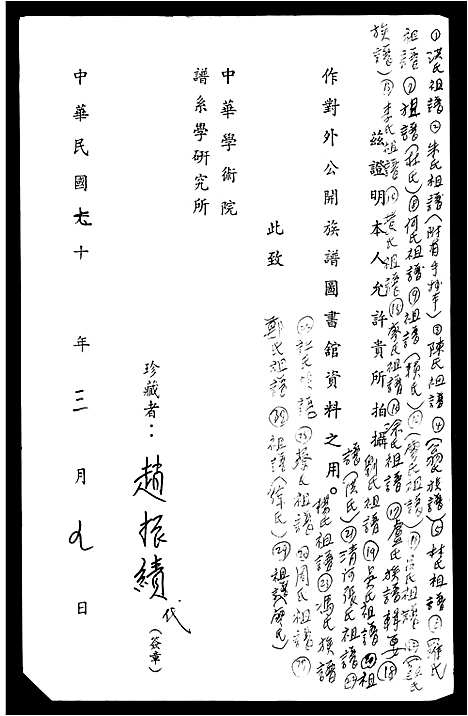 ①洪氏祖譜②朱氏祖譜(附有手抄本)③陳氏祖譜④(翁氏族譜)⑤杜氏祖譜⑥羅氏
祖譜⑦祖譜(杜氏)⑧何氏祖譜⑨祖譜(賴氏)⑩廖氏祖譜⑪
族譜)⑬李氏祖譜⑭黃氏祖譜⑮廖氏祖譜⑯涂氏祖譜⑰盧氏族譜輯要⑱
茲證明本人允許貴所拍攝劉氏祖譜⑲吳氏祖譜⑳祖
譜(洪氏)㉑清河張氏祖譜㉒
作對外公開族譜圖書館資料之用。楊氏祖譜㉓馮氏族譜
此致
江氏族譜㉕蔡氏祖譜㉖周氏祖譜㉗
鄭氏祖譜㉘祖譜(徐氏)㉙祖譜(廖氏)
中華學術院
譜系學研究所
珍藏者：趙振績代(簽章)
中華民國七十年三月九日